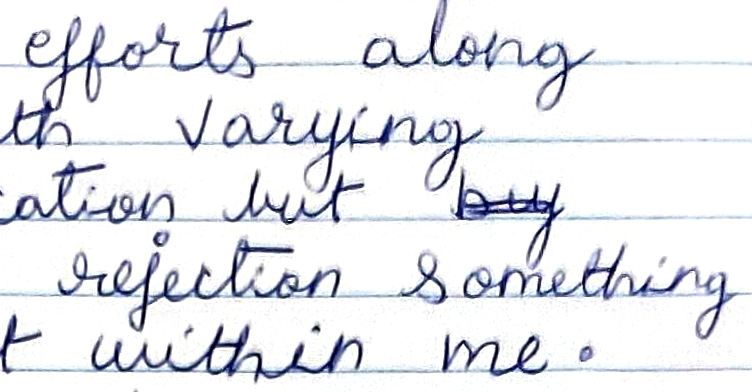 efforts along
th varying
cation but buy
rejection something
t within me.